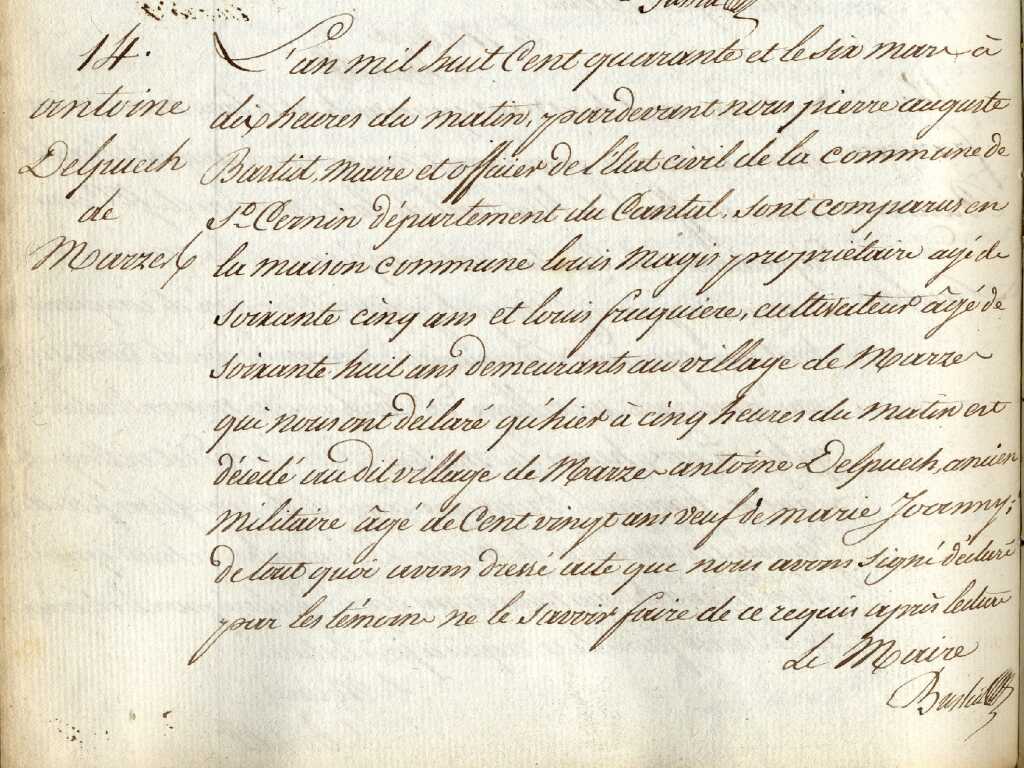 14.
antoine
Delpuech
de
Marze
L'an mil huit Cent quarante et le six mars à
dix heures du matin, pardevant nous pierre auguste
Bastid, Maire et officier de l'état civil de la commune de
St. Cernin département du Cantal, sont comparus en
la maison commune louis Magis propriétaire agé de
soixante cinq ans et louis fruquiere, cultivateur âgé de
soixante huit ans demeurants au village de Marze
qui nous ont déclaré qu'hier à cinq heures du matin est
décédé au dit village de Marze antoine Delpuech, ancien
Militaire âgé de Cent vingt ans veuf de marie Joanny;
de tout quoi avons dressé acte que nous avons signé déclaré
par les témoins ne le savoir faire de ce requis après lecture
Le Maire
Bastid